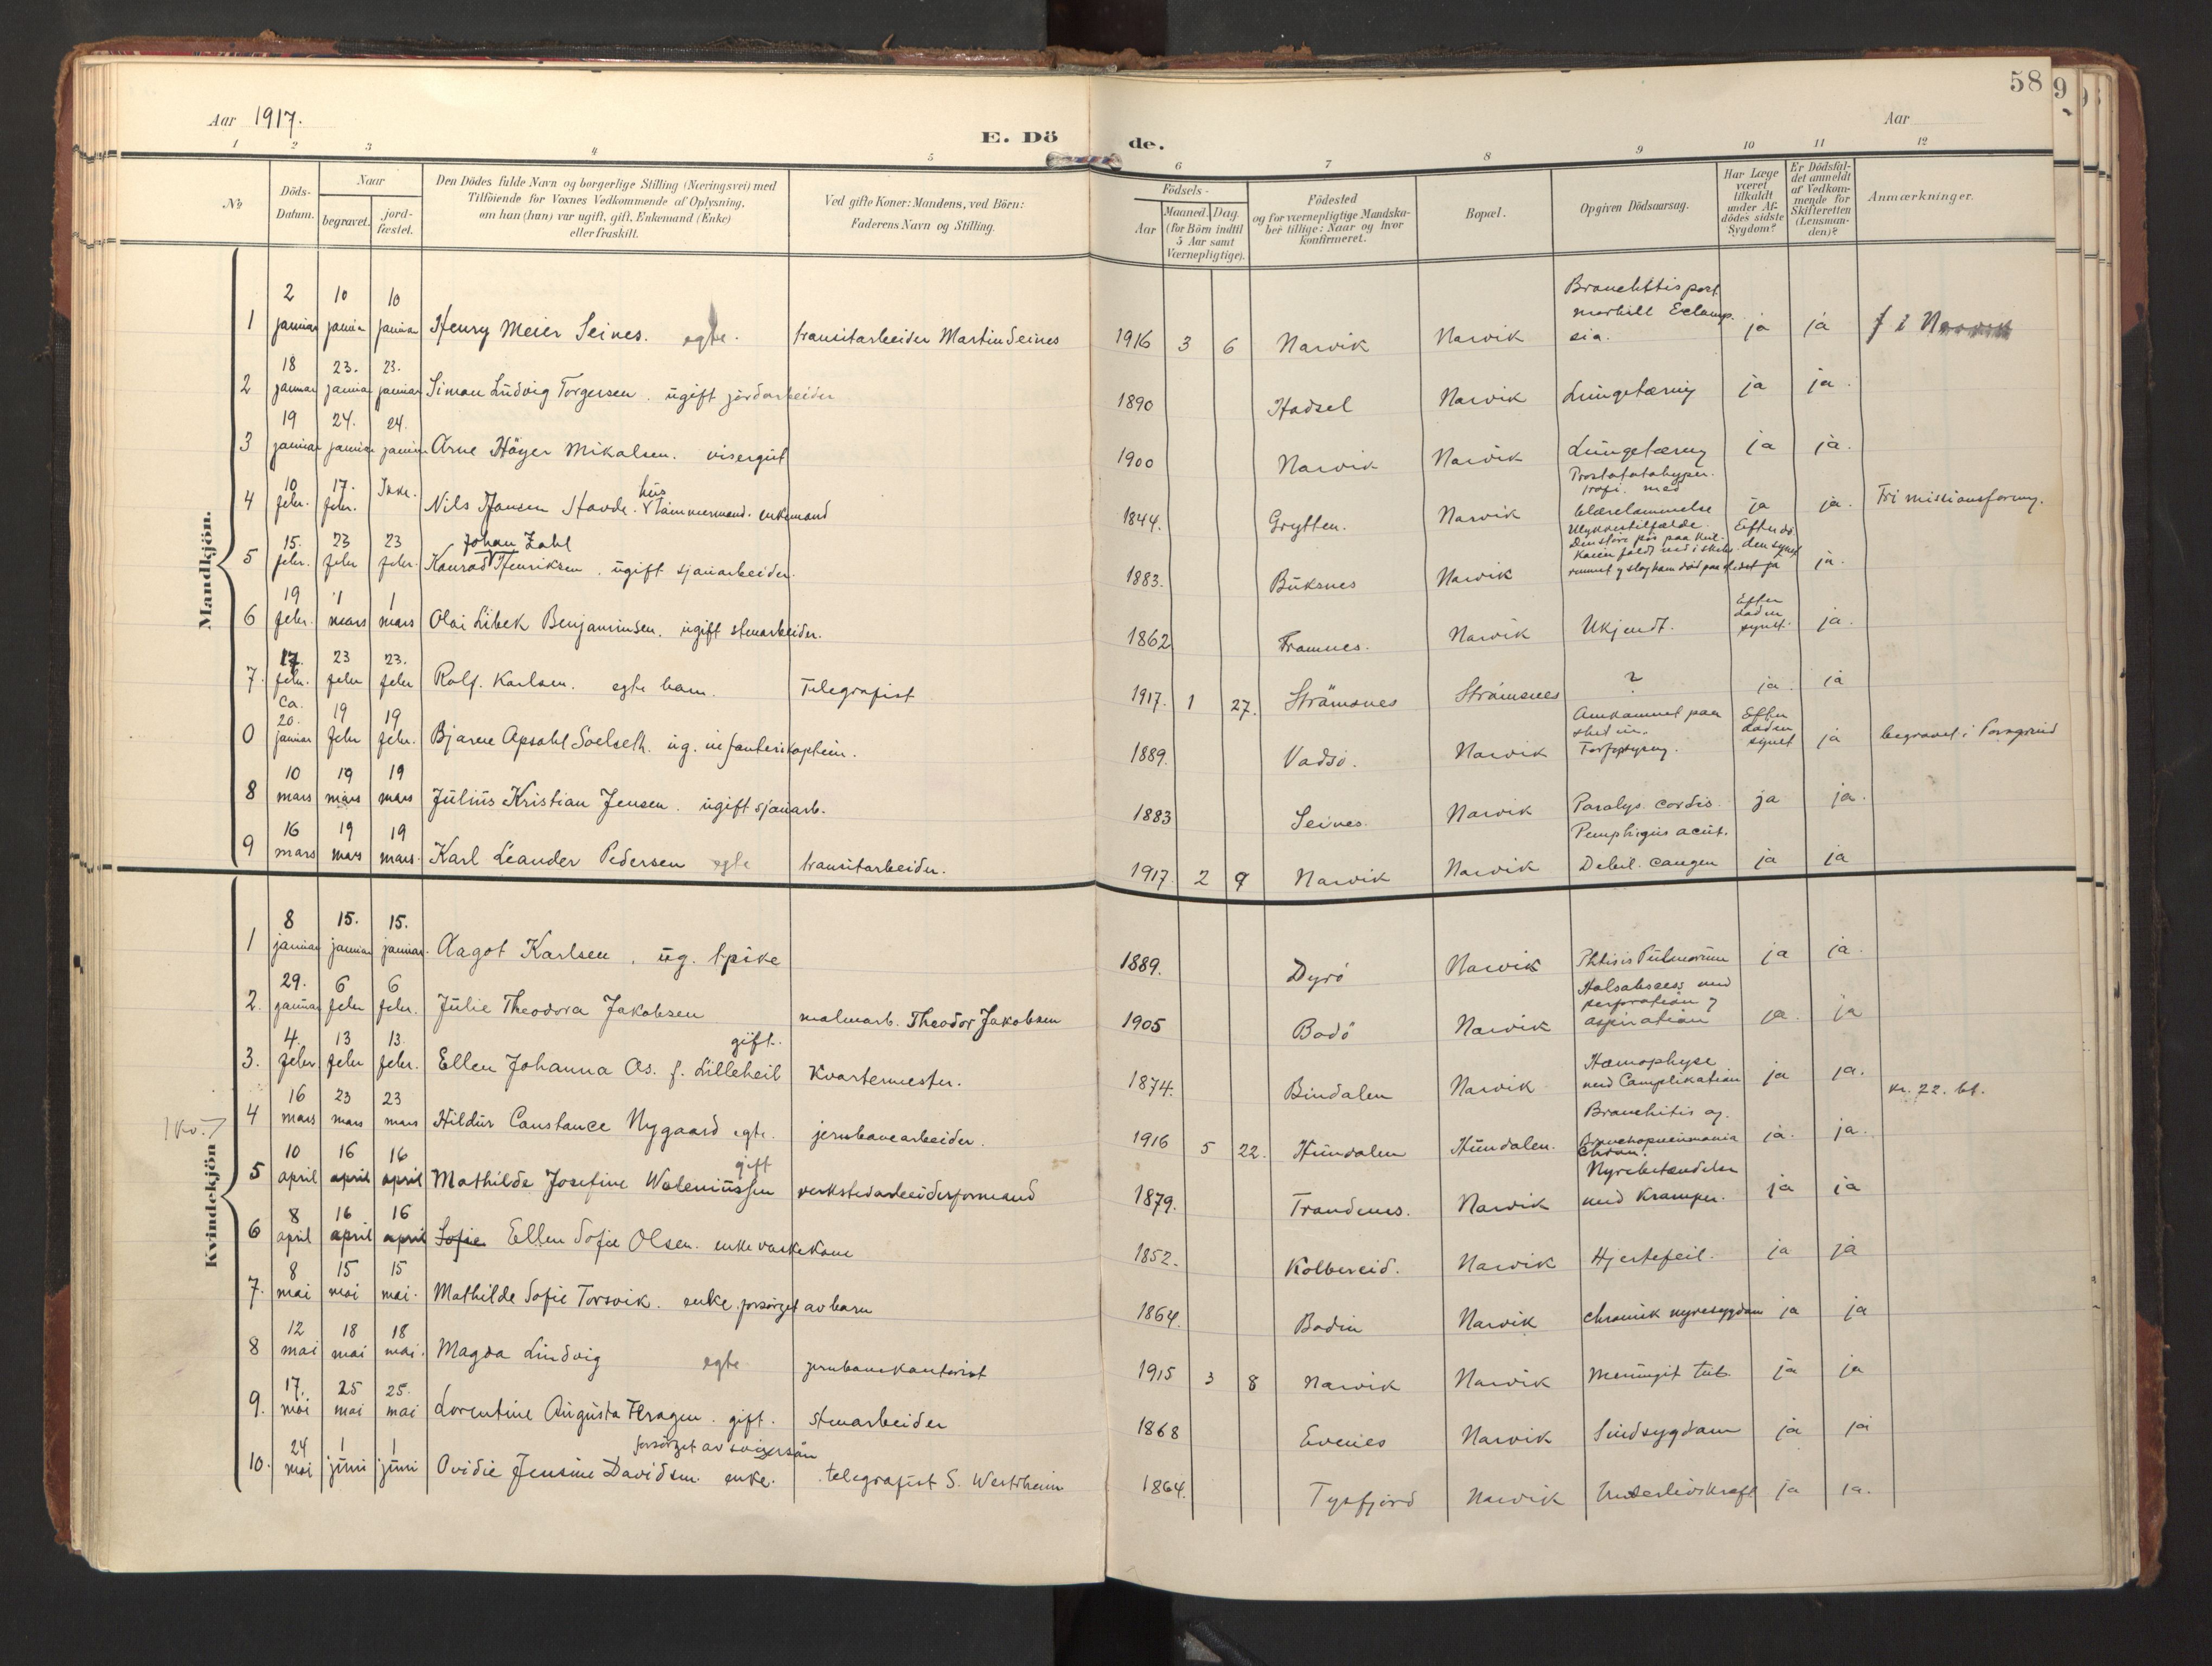 58
Aar 1917.
E. Dö de.
Aar
1 2 3 4 5 6 7 8 9 10 11 12
No
Döds-Datum.
Naar
begravet.
jord-fæstet.
Den Dödes fulde Navn og borgerlige Stilling (Næringsvei) med
Tilföiende for Voxnes Vedkommende af Oplysning,
om han (hun) var ugift, gift, Enkemand (Enke)
eller fraskilt.
Ved gifte Koner: Mandens, ved Börn:
Faderens Navn og Stilling.
Födsels-
Aar
Maaned. Dag.
(for Börn indtil
5 Aar samt
Værnepligtige).
Födested
og for værnepligtige Mandska-
ber tillige: Naar og hvor
Konfirmeret.
Bopæl.
Opgiven Dödsaarsag.
Har Læge
været
tilkaldt
under Af-
dödes sidste
Sygdom?
Er Dödsfal-
det anmeldt
af Vedkom-
mende for
Skifteretten
(Lensman-
den)?
Anmærkninger.
Mandkjön.
1 2 januar 10 januar 10 januar Henry Meier Seines. egte. transitarbeider Martin Seines 1916 3 6 Narvik Narvik ja ja f i Narvik
2 18 januar 23. januar 23. januar Simon Ludvig Torgersen. ugift jordarbeider 1890 Hadsel Narvik Lungetæring ja ja.
3 19 januar 24. januar 24. januar Arne Höyer Mikalsen. visergut 1900 Narvik Narvik Lungetæring ja ja.
4 10 febr. 17. febr. Ikke. Nils Hansen Hovde. hustömmermand. enkemand 1844. Grytten. Narvik Prostatahypertrofi. med blærelammelse ja ja. Fri missionsforening.
5 15. febr. 23 febr 23 febr. Konrad Johan Zahl Henriksen. ugift sjauarbeider. 1883. Buksnes Narvik Ulykkestilfælde. ja.
6 19 febr. 1 mars 1 mars Olai Libek Benjaminsen. ugift stenarbeider. 1862 Framnes. Narvik Ukjendt. Efter döden synet. ja.
7. 17. febr. 23 febr 23. febr Rolf. Karlsen. egte barn. Telegrafist 1917. 1 27. Strömsnes Strömsnes ? ja. ja
0 Ca. 20. januar 19 febr 19 febr. Bjarne Apsahl Soelseth. ug. infanterikaptein. 1889. Vadsö. Narvik Omkommet paa skitur. Efter döden synet ja begravet i Porsgrund
8 10 mars 19 mars 19 mars Julius Kristian Jensen. ugift sjauarb. 1883 Seines. Narvik Paralys. cordis. ja ja.
9 16 mars 19 mars 19 mars. Karl Leander Pedersen egte transitarbeider. 1917. 2 9 Narvik Narvik Pemphigus acut. Debil. congen ja ja
Kvindekjön
1 8 januar 15. januar 15. januar. Aagot Karlsen, ug. t.pike 1889. Dyrö Narvik Phtisis Pulmonum ja ja.
2. 29. januar 6 febr 6 febr. Julie Theodora Jakobsen malmarb. Theodor Jakobsen 1905 Bodö Narvik Halsabscess med perforation og aspiration ja. ja
3. 4. febr 13 febr 13. febr. Ellen Johanna Os. f. Lilleheil gift. Kvartermester. 1874. Bindalen Narvik Hæmophyse med Complikation ja ja.
4 16 mars 23 mars 23 mars Hildur Constance Nygaard egte. jernbanearbeider. 1916 5 22. Hundalen Hundalen. Bronchitis og. Bronchopneumonia Chron. ja. ja. kr. 22. bt.
5 10 april 16 april 16 april Mathilde Josefine Waleniussen gift verkstedarbeiderformand 1879. Trondenes. Narvik Nyrebetændelse med Kramper. ja ja
6 8 april 16 april 16 april Sofie Ellen Sofie Olsen. enke vaskekone 1852. Kolbereid. Narvik Hjertefeil. ja ja
7. 8 mai 15 mai 15 mai. Mathilde Sofie Torsvik. enke. forsörget av barn 1864. Bodin Narvik chronisk nyresygdom ja ja
8 12 mai 18 mai 18 mai. Magda Lindvig egte jernbanekontorist 1915 3 8 Narvik Narvik Meningit tub. ja ja
9. 17. mai 25 mai 25. mai Lorentine Augusta Hragen. gift. stenarbeider 1868 Evenes Narvik Sindsygdom ja ja
10. 24 mai 1 juni 1 juni Ovidie Jensine Davidsen. enke. forsörget av svigersön telegrafist S. Westrheim 1864. Tysfjord Narvik Underlivskræft ja ja.